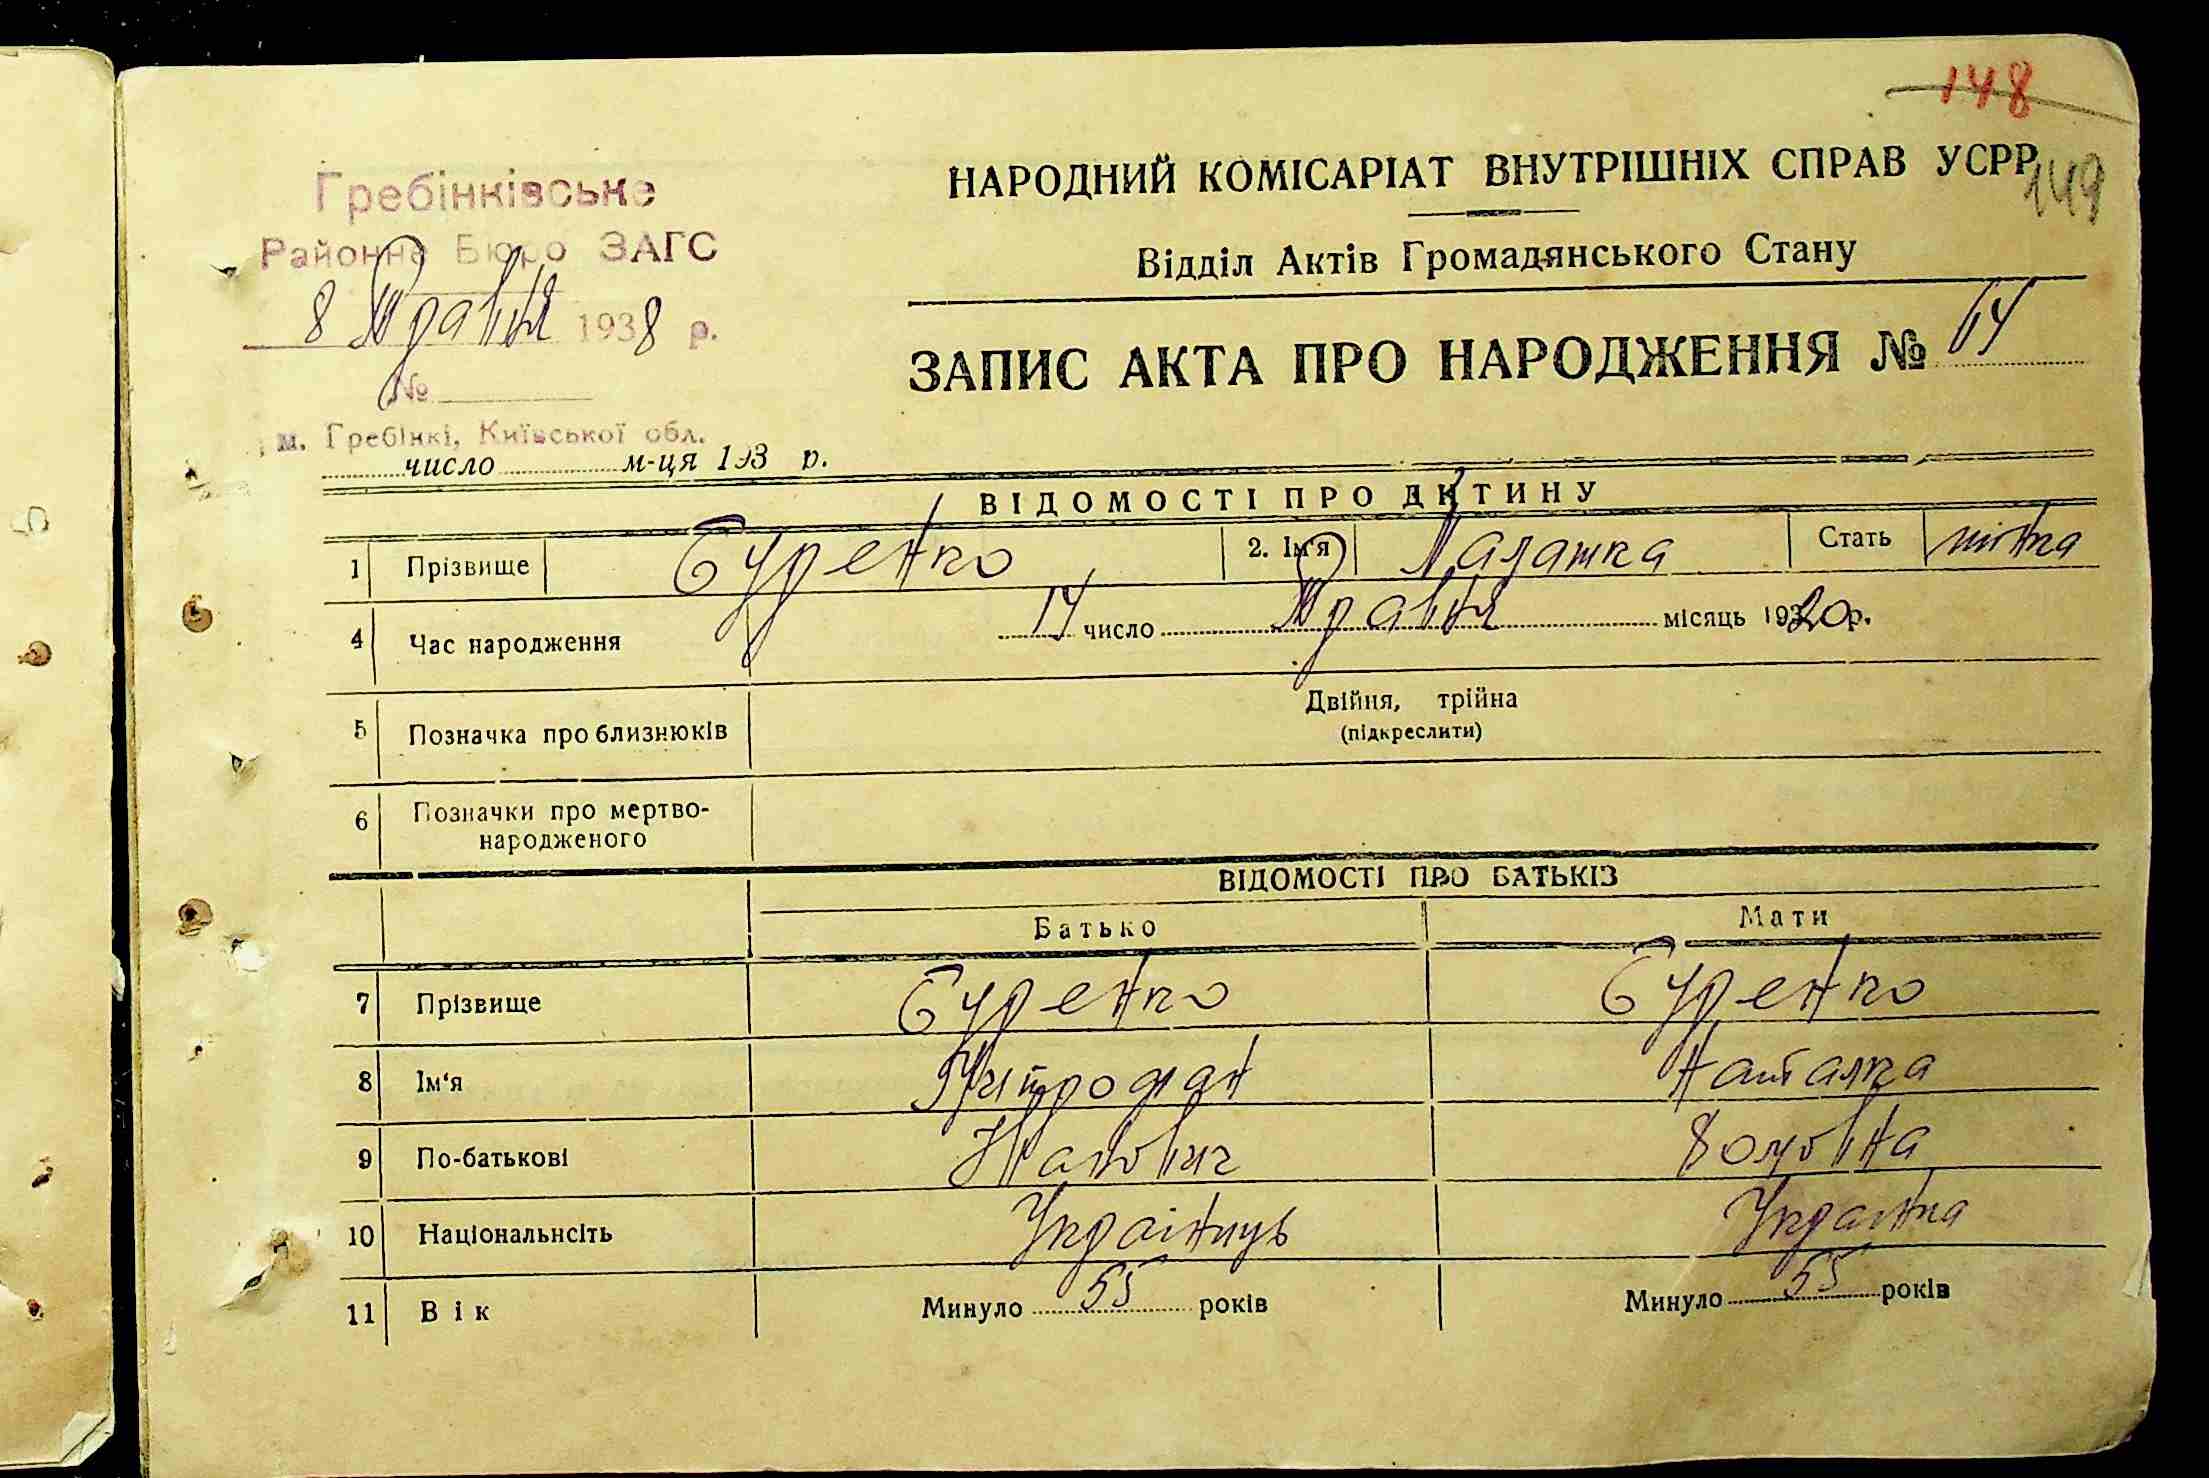 148
149
Гребінківське
Районне Бюро ЗАГС
8 Травня 1938 р.
№
м. Гребінкі, Київської обл.
число м-ця 193 р.
НАРОДНИЙ КОМІСАРІАТ ВНУТРІШНІХ СПРАВ УСРР
Відділ Актів Громадянського Стану
ЗАПИС АКТА ПРО НАРОДЖЕННЯ № 64
ВІДОМОСТІ ПРО ДИТИНУ
1 Прізвище Буренко 2. Ім'я Малашка Стать жінка
4 Час народження 14 число Травня місяць 1920 р.
5 Позначка про близнюків Двійня, трійна
(підкреслити)
6 Позначки про мертво-
народженого
ВІДОМОСТІ ПРО БАТЬКІВ
Батько Мати
7 Прізвище Буренко Буренко
8 Ім'я Митрофан Наталка
9 По-батькові
10 Національнсіть Українць Українка
11 Вік Минуло 55 років Минуло 55 років